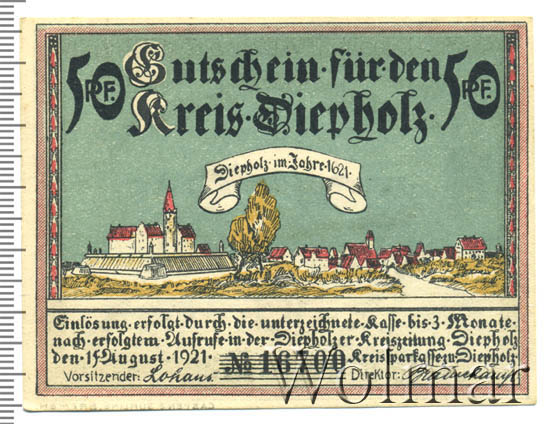 50 PF. Gutschein·für·den 50 PF.
Kreis·Diepholz·
Diepholz·im·Jahre·1621·
Einlösung·erfolgt·durch·die·unterzeichnete·Kasse·bis·3·Monate·
nach·erfolgtem·Aufrufe·in·der·Diepholzer·Kreiszeitung·Diepholz
den·15·August·1921· Kreissparkasse·zu·Diepholz·
Vorsitzender: Lohaus. Direktor:
Wolmar